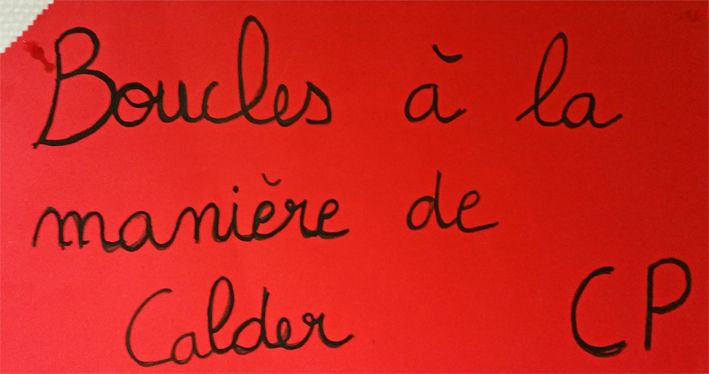 Boucles à la
manière de
Calder CP